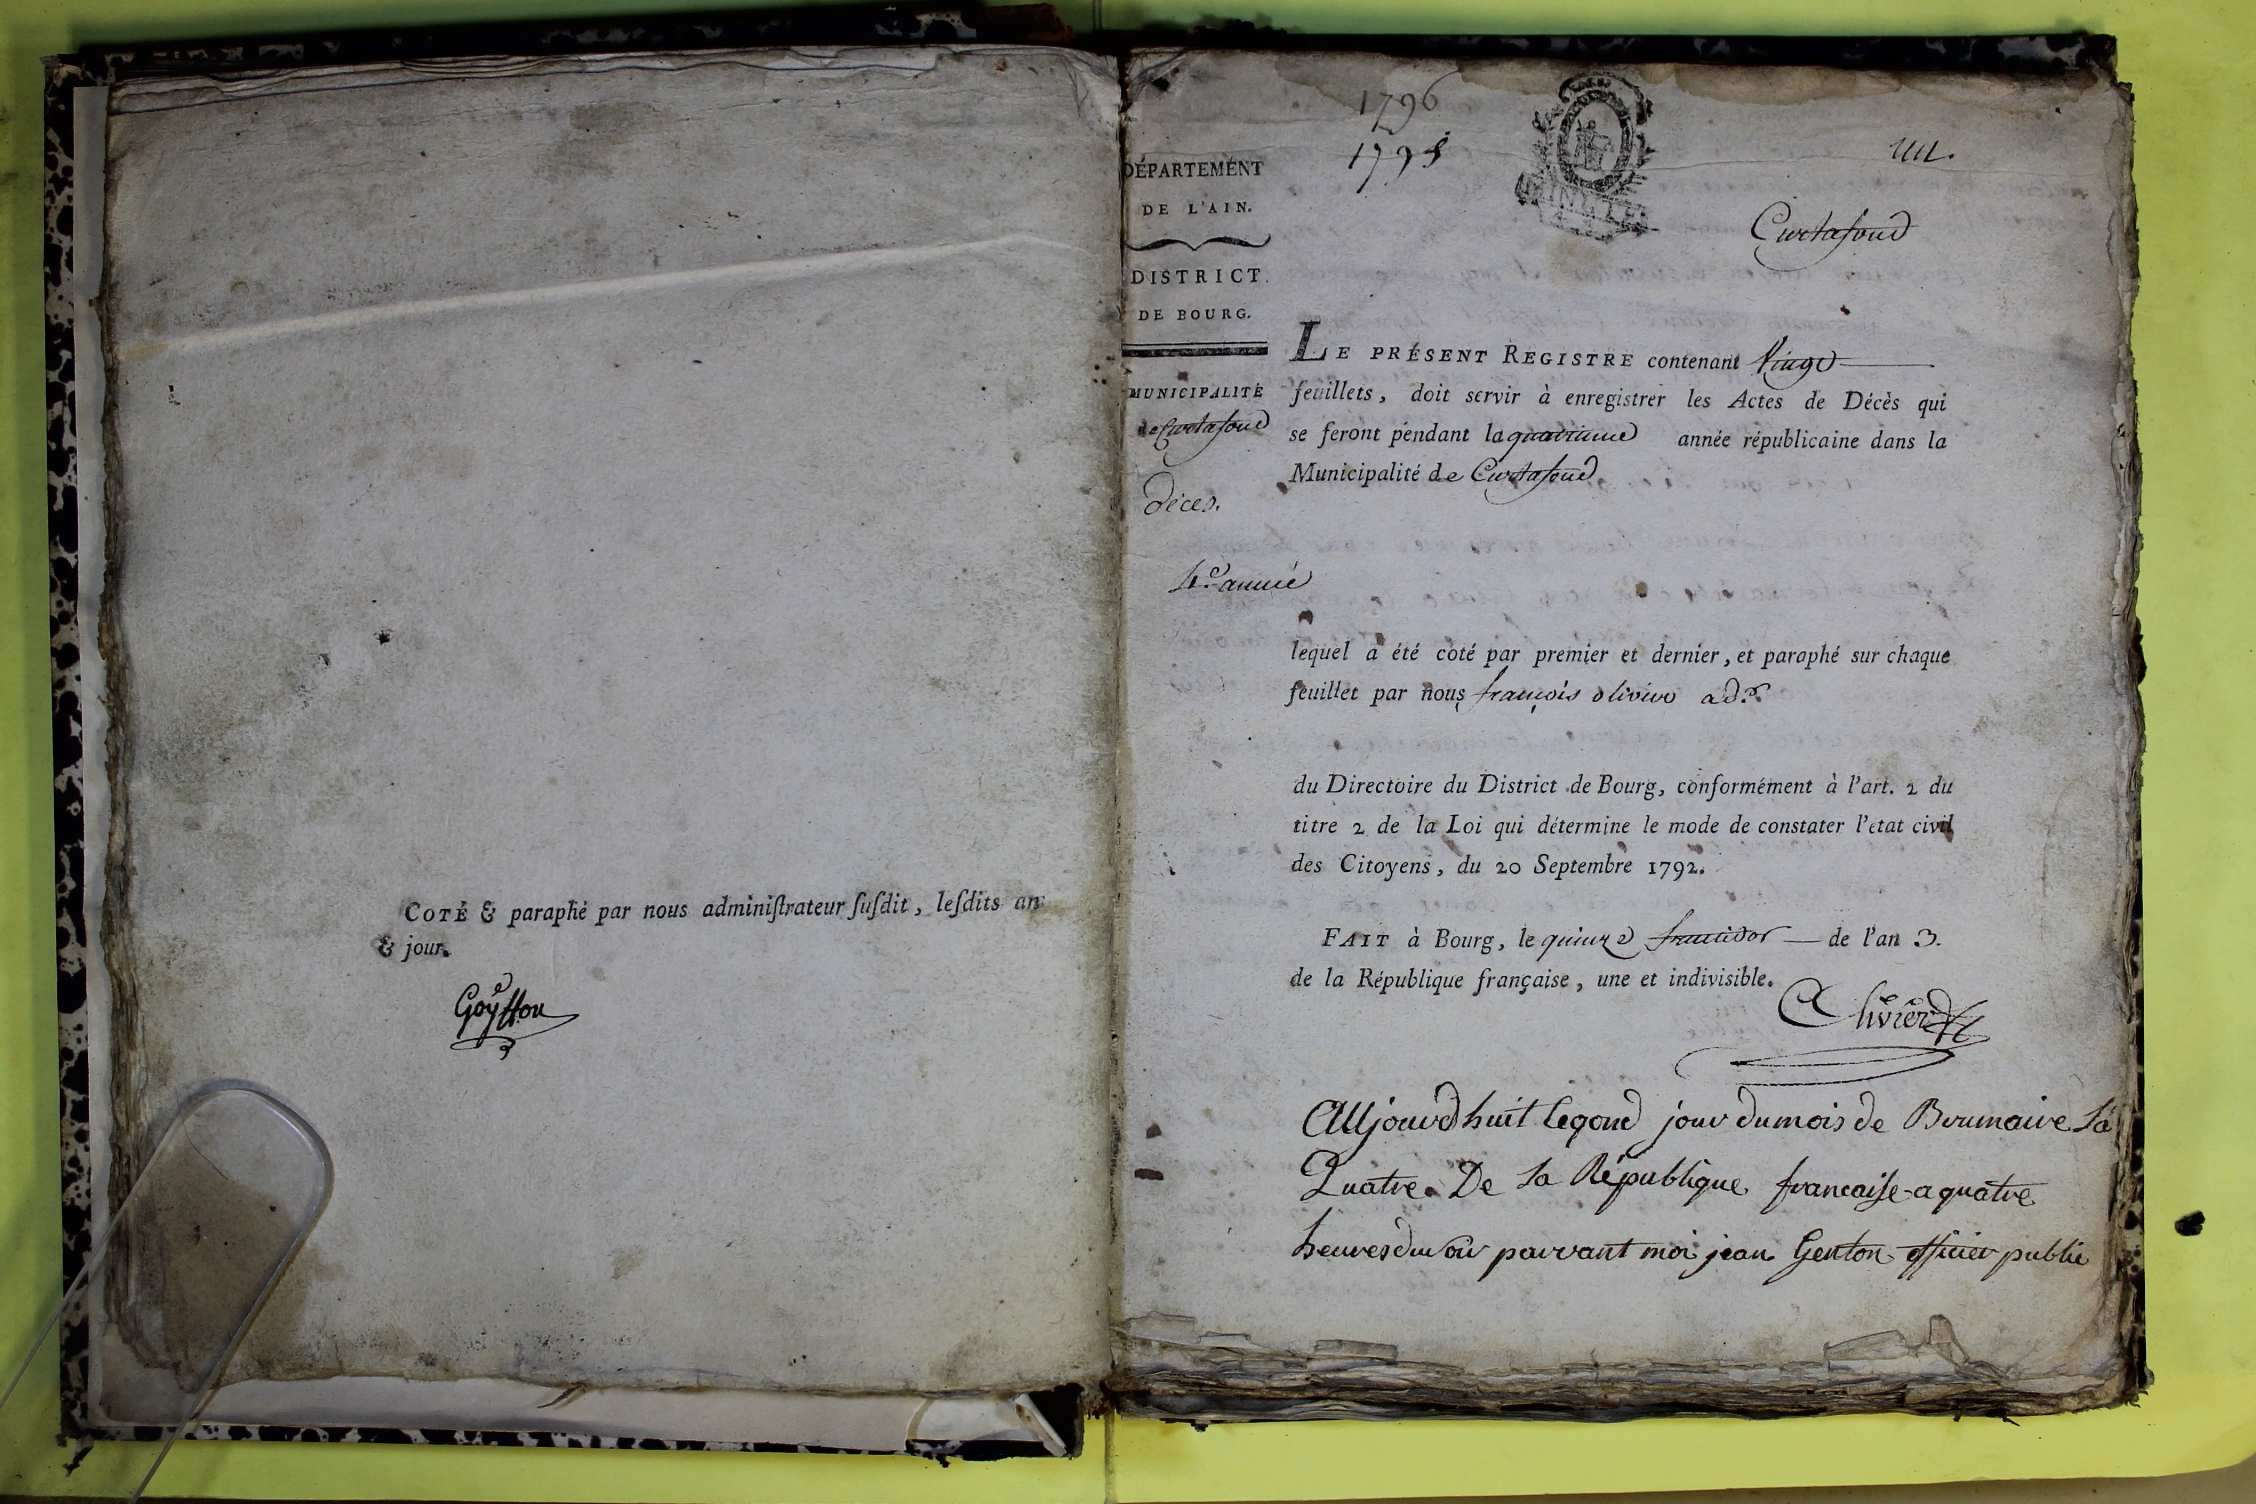 COTÉ & paraphé par nous adminiſtrateur ſuſdit, leſdits an
& jour.
Goÿffon
1796
1795
un.
Curtafond
DÉPARTEMENT
DE L'AIN.
DISTRICT
DE BOURG.
MUNICIPALITÉ
de Curtafond
Déces.
4.e année
LE PRÉSENT REGISTRE contenant Vingt
feuillets, doit servir à enregistrer les Actes de Décès qui
se feront pendant la quatrieme année républicaine dans la
Municipalité de Curtafond
lequel a été coté par premier et dernier, et paraphé sur chaque
feuillet par nous françois olivier ad.r
du Directoire du District de Bourg, conformément à l'art. 2 du
titre 2 de la Loi qui détermine le mode de constater l'etat civil
des Citoyens, du 20 Septembre 1792.
FAIT à Bourg, le quinze fructidor de l'an 3.
de la République française, une et indivisible.
Olivier
Aujourdhuit segond jour du mois de Brumaire La
Quatre De La République francaise a quatre
heures du soir parvant moi jean Genton officier public